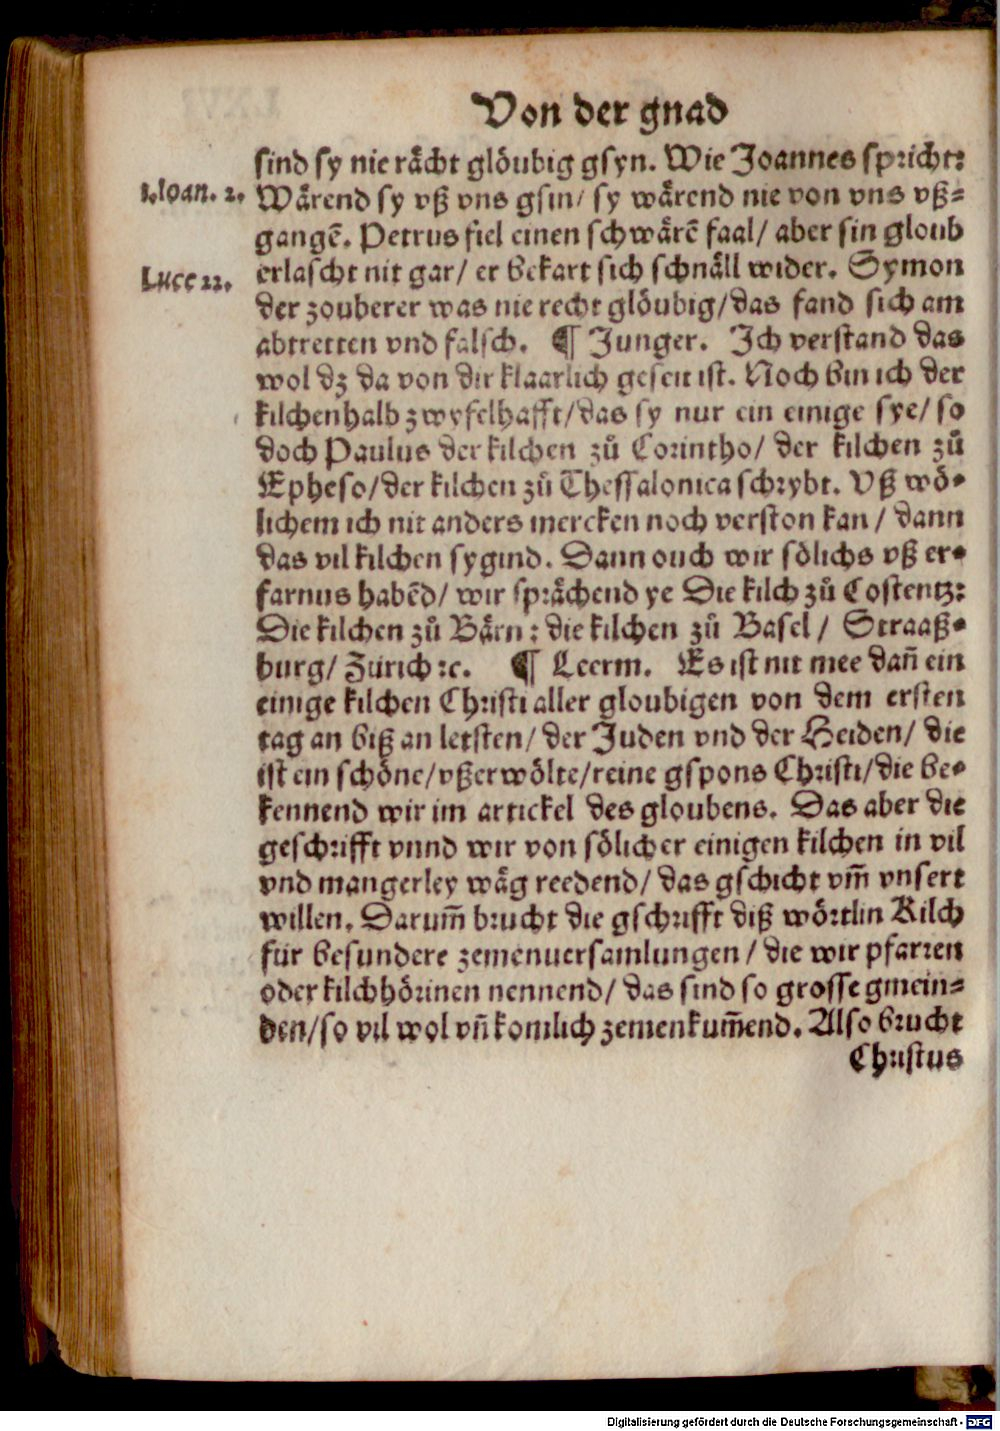 Von der gnad
sind sy nie rächt glöubig gsyn. Wie Joannes spricht:
1.Ioan. 2.
Wärend sy vß vns gsin/ sy wärend nie von vns vß=
gangẽ. Petrus fiel einen schwärẽ faal/ aber sin gloub
Luce 22.
erlascht nit gar/ er bekart sich schnäll wider. Symon
der zouberer was nie recht glöubig/das fand sich am
abtretten vnd falsch. ¶ Junger. Ich verstand das
wol dz da von dir klaarlich geseit ist. Noch bin ich der
kilchenhalb zwyfelhafft/das sy nur ein einige sye/ so
doch Paulus der kilchen zů Corintho/ der kilchen zů
Epheso/der kilchen zů Thessalonica schrybt. Vß wö=
lichem ich nit anders mercken noch verston kan/ dann
das vil kilchen sygind. Dann ouch wir sölichs vß er=
farnus habẽd/ wir sprächend ye Die kilch zů Costentz:
Die kilchen zů Bärn: die kilchen zů Basel/ Straaß=
burg/ Zürich ꝛc. ¶ Leerm. Es ist nit mee dañ ein
einige kilchen Christi aller gloubigen von dem ersten
tag an biß an letsten/ der Juden vnd der Heiden/ die
ist ein schöne/vßerwölte/reine gspons Christi/die be=
kennend wir im artickel des gloubens. Das aber die
geschrifft vnnd wir von sölicher einigen kilchen in vil
vnd mangerley wäg reedend/ das gschicht vm̃ vnsert
willen. Darum̃ brucht die gschrifft diß wörtlin Kilch
für besundere zemenuersamlungen/ die wir pfarren
oder kilchhörinen nennend/ das sind so grosse gmein=
den/so vil wol vñ komlich zemenkum̃end. Also brucht
Christus
Digitalisierung gefördert durch die Deutsche Forschungsgemeinschaft - DFG